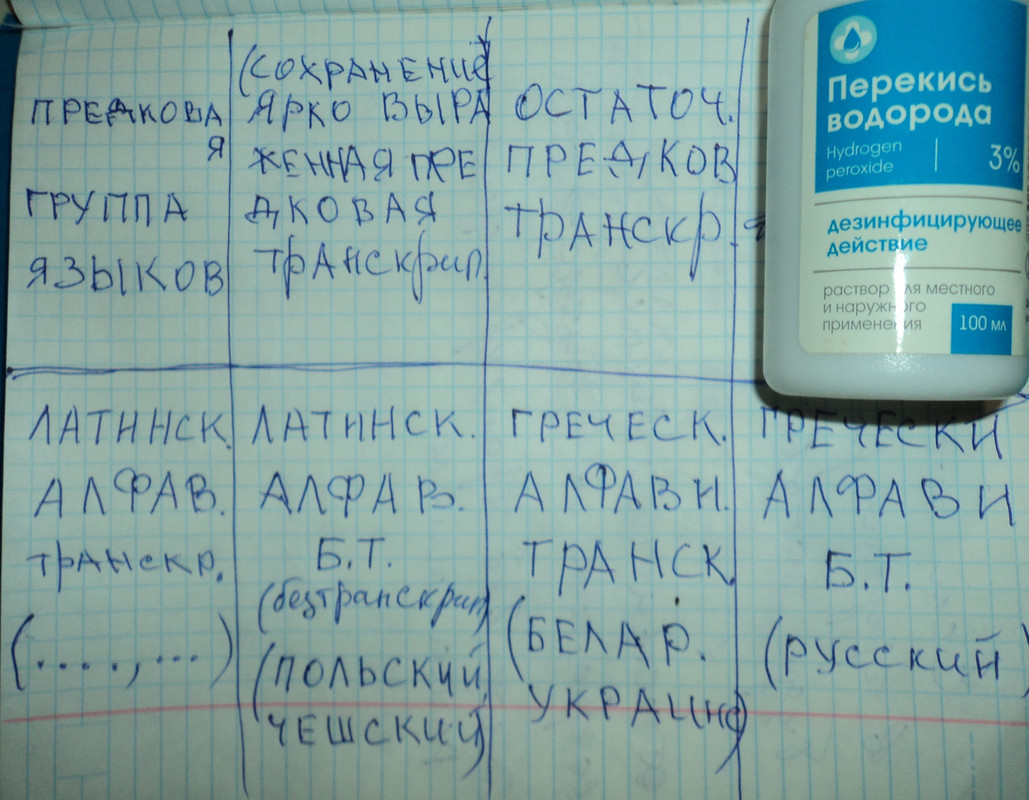 ПРЕДКОВА
Я
ГРУППА
ЯЗЫКОВ
(СОХРАНЕНИЕ)
ЯРКО ВЫРА
ЖЕННАЯ ПРЕ
ДКОВАЯ
ТРАНСКРИП.
ОСТАТОЧ.
ПРЕДКОВ
ТРАНСКР.
Перекись
водорода
Hydrogen
peroxide
3%
дезинфицирующее
действие
раствор для местного
и наружного
применения
100 мл
ЛАТИНСК.
АЛФАВ.
ТРАНСКР.
(....,...)
ЛАТИНСК.
АЛФАВ.
Б.Т.
(безтранскрип)
(ПОЛЬСКИЙ,
ЧЕШСКИЙ)
ГРЕЧЕСК.
АЛФАВИ.
ТРАНСК.
(БЕЛАР.
УКРАИНС)
ГРЕЧЕСКИ
АЛФАВИ
Б.Т.
(РУССКИЙ)